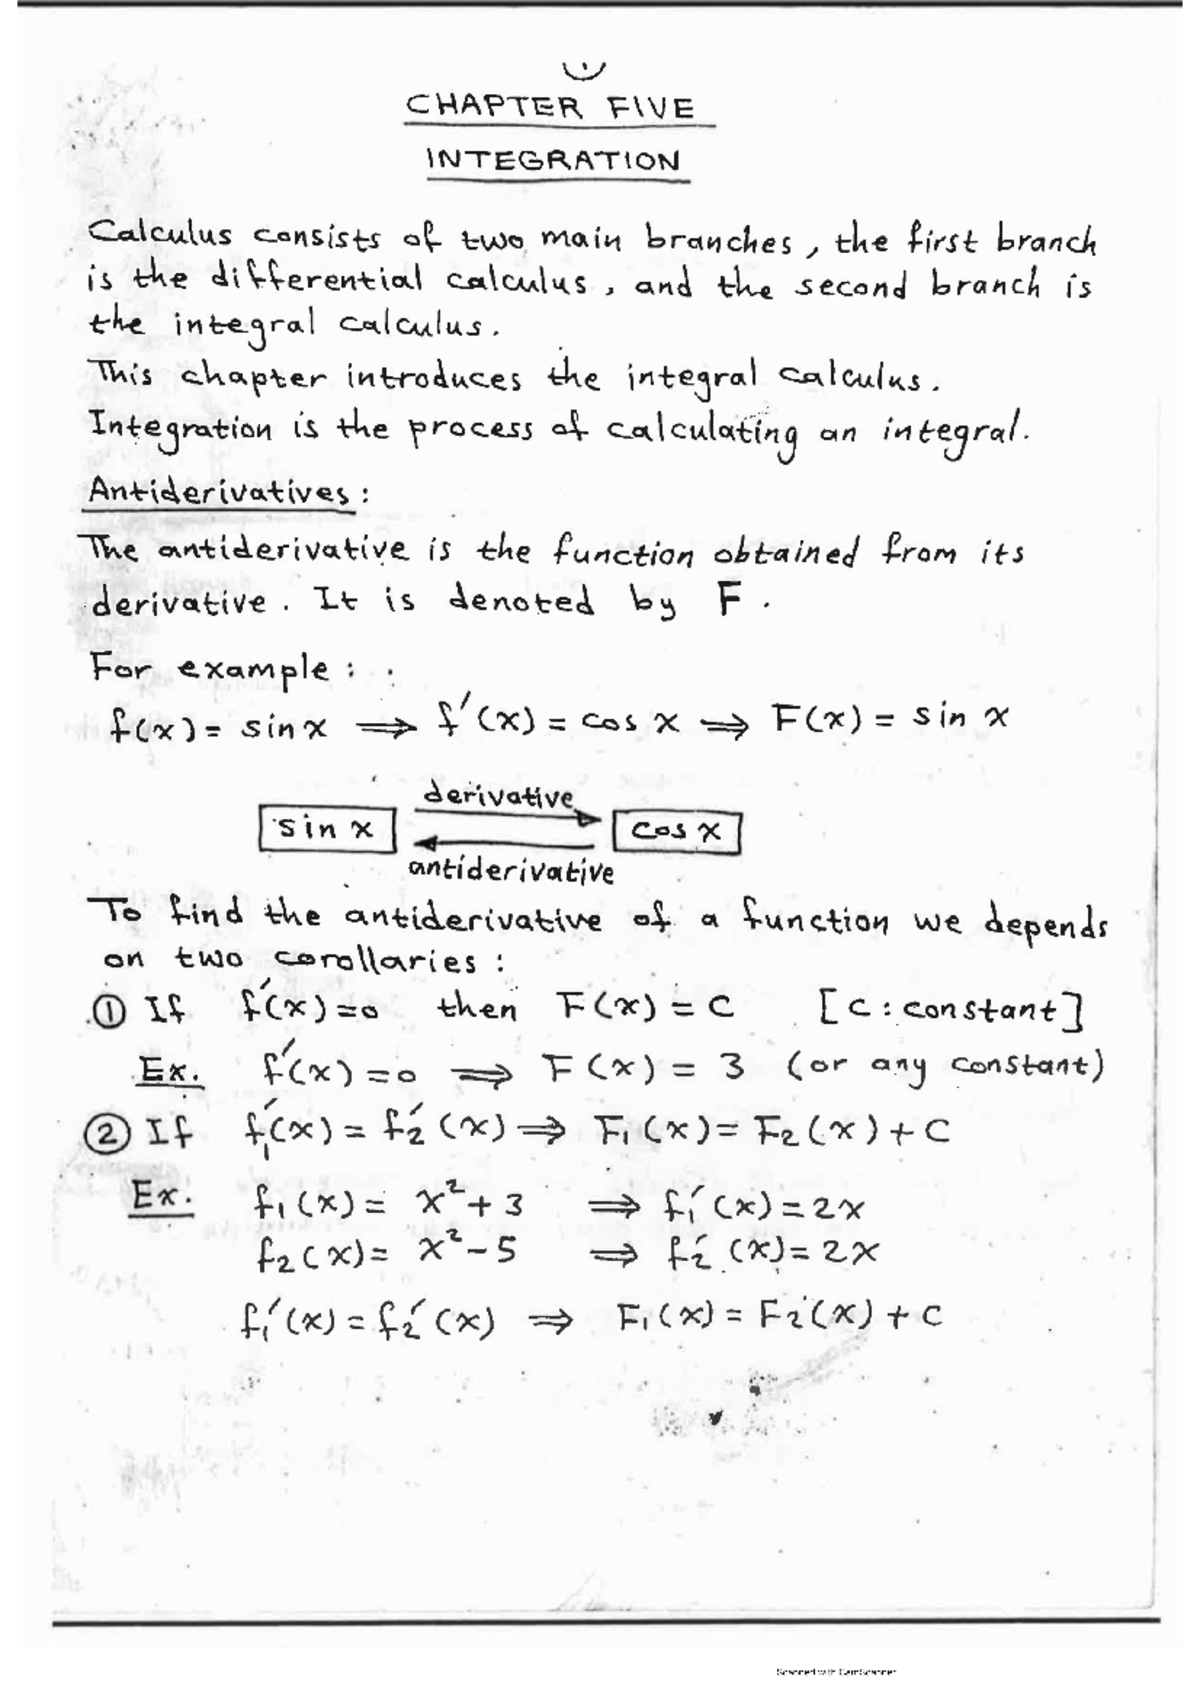 CHAPTER FIVE
INTEGRATION
Calculus consists of two main branches, the first branch
is the differential calculus, and the second branch is
the integral calculus.
This chapter introduces the integral calculus.
Integration is the process of calculating an integral.
Antiderivatives:
The antiderivative is the function obtained from its
derivative. It is denoted by F.
For example:
f(x) = sin x ⟹ f′(x) = cos x ⟹ F(x) = sin x
derivative
sin x cos x
antiderivative
To find the antiderivative of a function we depends
on two corollaries:
① If f′(x) = 0 then F(x) = C [C: constant]
Ex. f′(x) = 0 ⟹ F(x) = 3 (or any constant)
② If f₁′(x) = f₂′(x) ⟹ F₁(x) = F₂(x) + C
Ex. f₁(x) = x² + 3 ⟹ f₁′(x) = 2x
f₂(x) = x² - 5 ⟹ f₂′(x) = 2x
f₁′(x) = f₂′(x) ⟹ F₁(x) = F₂(x) + C
Scanned with CamScanner